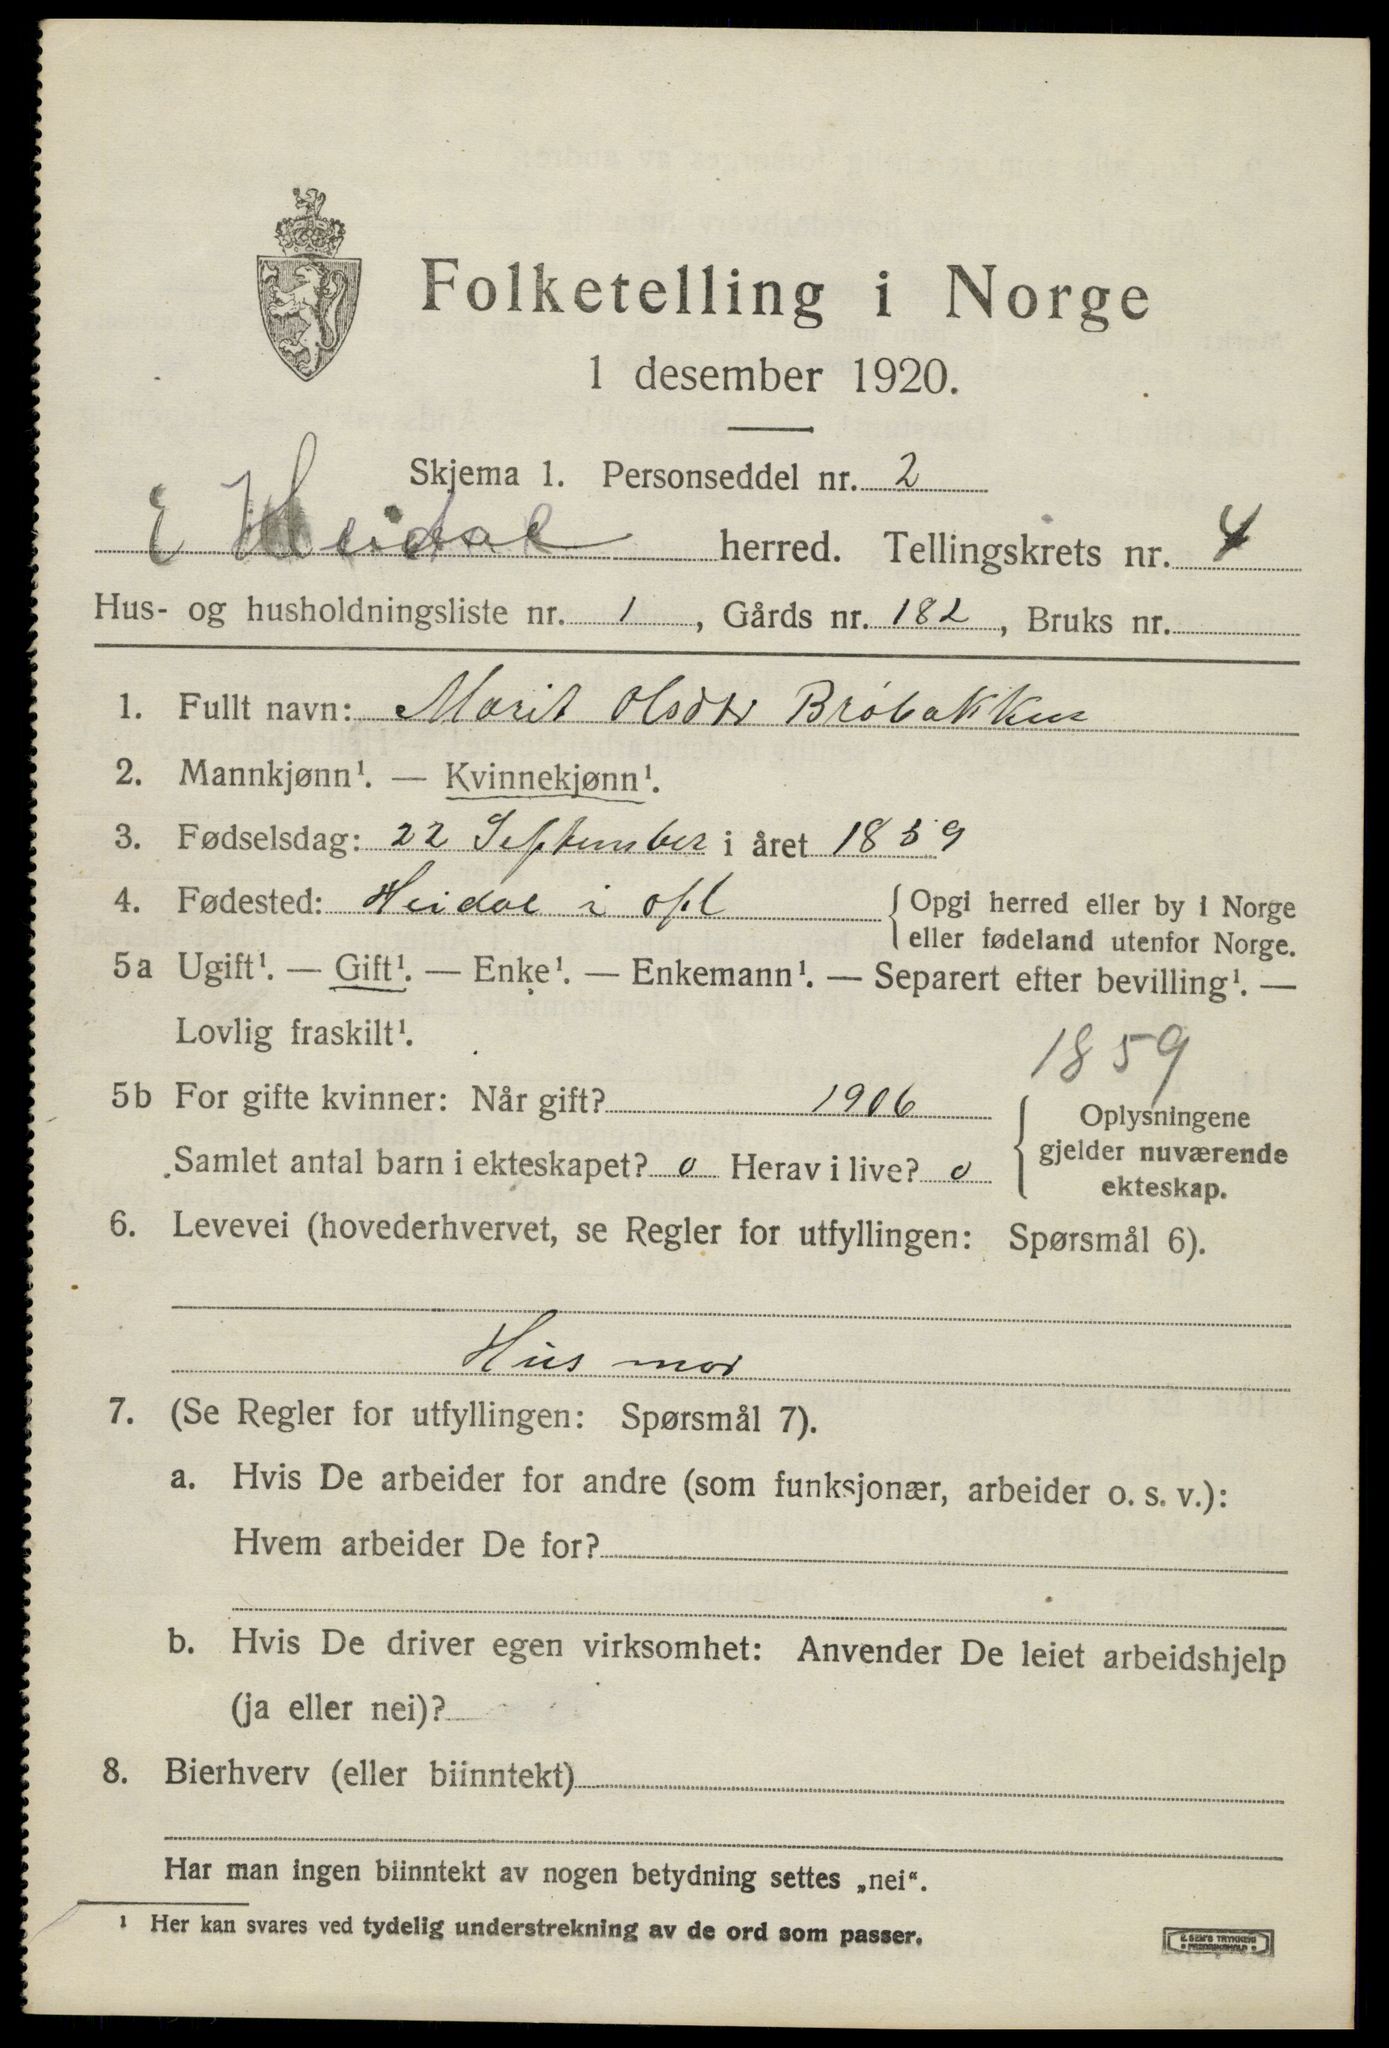 Folketelling i Norge
1 desember 1920.
Skjema 1. Personseddel nr. 2
E Heidal herred. Tellingskrets nr. 4
Hus- og husholdningsliste nr. 1, Gårds nr. 182, Bruks nr.
1. Fullt navn: Marit Olsdtr Bröbakken
2. Mannkjønn¹. — Kvinnekjønn¹.
3. Fødselsdag: 22 September i året 1859
4. Fødested: Heidal i opl { Opgi herred eller by i Norge
eller fødeland utenfor Norge.
5a Ugift¹. — Gift¹. — Enke¹. — Enkemann¹. — Separert efter bevilling¹. —
Lovlig fraskilt¹.
1859
5b For gifte kvinner: Når gift? 1906
Samlet antal barn i ekteskapet? 0 Herav i live? 0
{ Oplysningene
gjelder nuværende
ekteskap.
6. Levevei (hovederhvervet, se Regler for utfyllingen: Spørsmål 6).
Hus mor
7. (Se Regler for utfyllingen: Spørsmål 7).
a. Hvis De arbeider for andre (som funksjonær, arbeider o. s. v.):
Hvem arbeider De for?
b. Hvis De driver egen virksomhet: Anvender De leiet arbeidshjelp
(ja eller nei)?
8. Bierhverv (eller biinntekt)
Har man ingen biinntekt av nogen betydning settes „nei“.
¹ Her kan svares ved tydelig understrekning av de ord som passer.
E. SEM'S TRYKKERI
FREDRIKSHALD